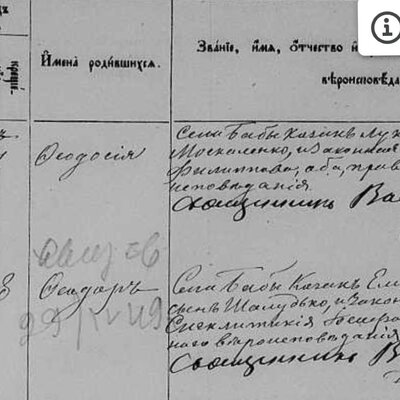 Имена родившихся.
Званіе, имя, отчество и
вѣроисповѣда
креще
Ѳеодосія
Села Бабы казакъ Лук
Москаленко, и законная
Филиппова, оба, прав
исповѣданія.
Священникъ Ва
Ѳеодоръ
29/IV 49
Села Бабы казакъ Ем
сынъ Шалудько, и закон
Синклитикія
наго вѣроисповѣданія
Священникъ В